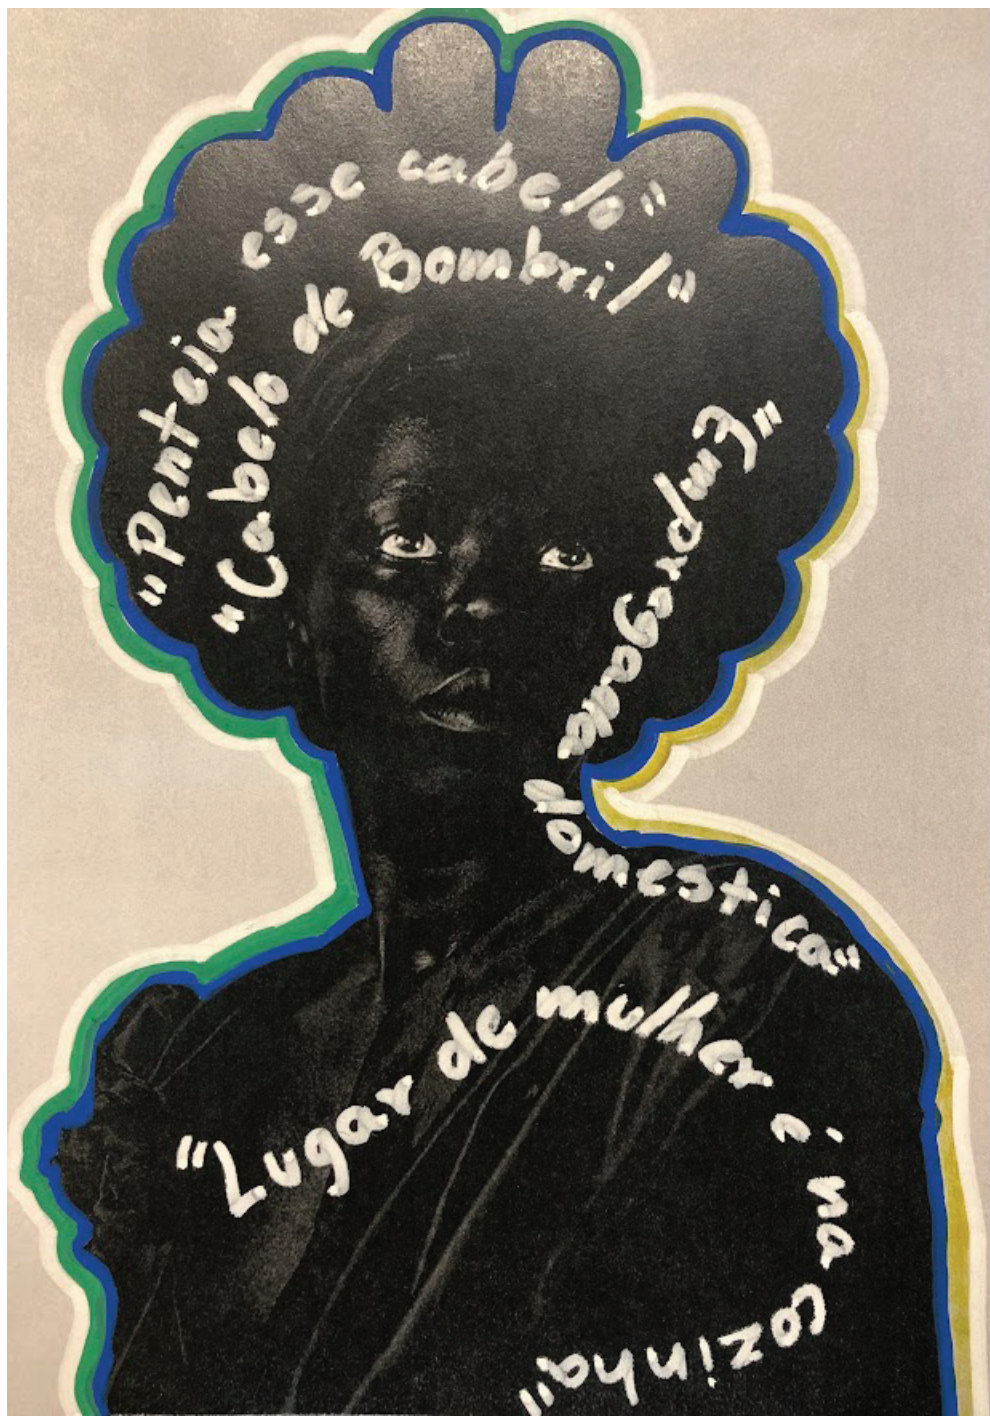 "Penteia esse cabelo"
"Cabelo de Bombril"
"Empregada domestica"
"Lugar de mulher é na cozinha"